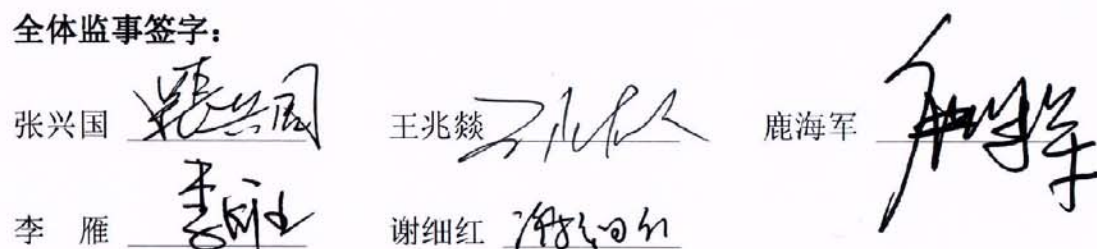 全体监事签字：
张兴国 张兴国 王兆燚 鹿海军
李 雁 李雁 谢细红 谢细红